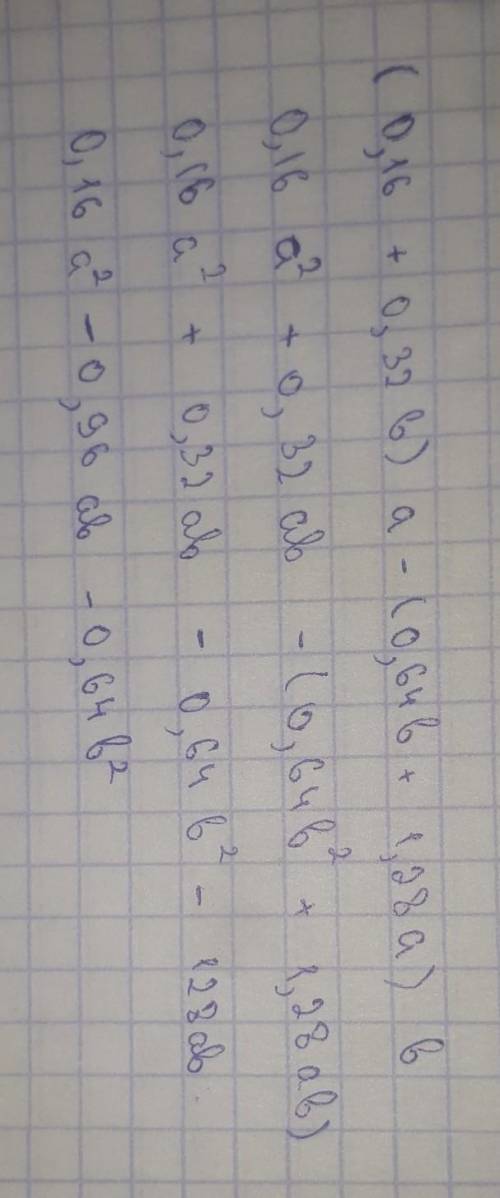 (0,16 + 0,32в) а - (0,64в + 1,28а) в
0,16 а² + 0,32 ав - (0,64в² + 1,28 ав)
0,16 а² + 0,32 ав - 0,64 в² - 128 ав
0,16 а² - 0,96 ав - 0,64 в²